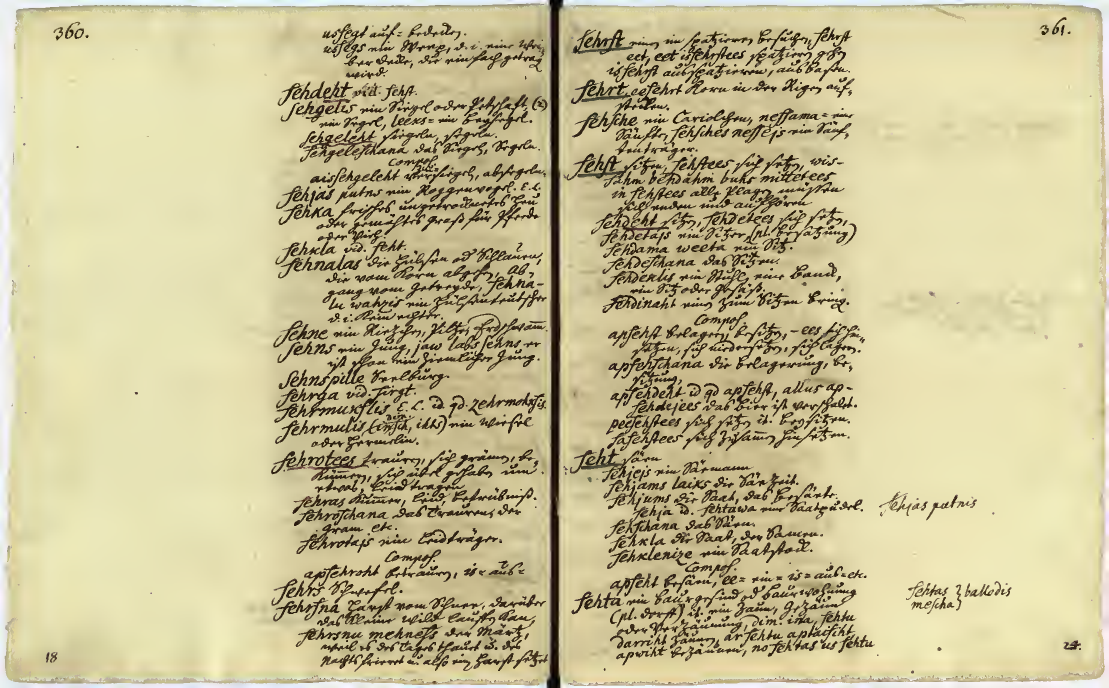 360.
ussegt auf- bedecken.
ussegs ein
wird.
sehdeht vid. sehst.
sehgelis ein Siegel oder Petschaft, (2)
ein Segel, leeks= ein Beysegel.
sehgeleht siegeln, segeln.
sehgeleschana das Siegeln, Segeln.
Compos.
aissehgeleht versiegeln, absegeln.
sehjas putns ein Roggenvogel. E. L.
sehka frisches ungetrocknetes Heu
oder gemähtes Graß für Pferde
oder Vieh.
sehkla vid. seht.
sehnalas die Hülsen od
die vom Korn abgehn, Ab-
gang vom Getreyde, sehna-
lu wahzis ein
d. i. kein echter.
sehne ein Pilz, Erdschwam.
sehns ein Jung, jaw labs sehns er
ist schon ein ziemlicher Jung.
Sehnspille Seelburg.
sehrga vid sirgt.
sehrmuxslis E. L. id qd zehrmoksis
sehrmulis ein Wiesel
oder Hermelin.
sehrotees trauren, sich grämen, be-
kümmern, sich übel gehaben um
etwas, Leid tragen.
sehras Kummer, Leid, Betrübniß.
sehroschana das Trauren, der
Gram etc.
sehrotajs ein Leidträger.
Compos.
apsehroht betrauren, is= aus=
sehrs Schwefel.
sehrsna Harst vom Schnee, darüber
das kleine Wild lauffen kan,
sehrsnu mehness der Martz,
weil es des Tages thauet u. des
Nachts frieret u. also ein Harst setzet
18
361.
sehrst einen im spatzieren besuchen, sehrst
eet, eet issehrstees spatzieren gehn
issehrst ausspatzieren,
sehrt. eesehrt Korn in der Rigen auf-
stecken.
sehsche ein Cariolchen, nessama= eine
Sänfte, sehsches nessejs ein Sänf-
tenträger.
sehst sitzen, sehstees sich setzen, wis-
sahm behdahm buhs mittetees
in sehstees alle Plagen müssen
sich enden und aufhören
sehdeht sitzen, sehdetees sich setzen,
sehdetajs ein Sitzer (pl. Besatzung)
sehdama weeta ein Sitz.
sehdeschana das Sitzen.
sehdeklis ein Stuhl, eine Banck,
ein Sitz oder Gesäß.
sehdinaht einen zum Sitzen bring.
Compos.
apsehst belagern, besitzen, -ees sich hin-
setzen, sich niedersetzen, sich lagern.
apsehschana die Belagerung, be-
sitzung.
apsehdeht id qd apsehst, allus ap-
sehdejees das Bier ist verschalt.
peesehstees sich setzen it. beysitzen.
sasehstees sich zusammen hinsetzen.
seht säen
sehjejs ein Säemann
sehjams laiks die Säezeit.
sehjums die Saat, das Besäete.
sehja id. sehtawa eine Saatpudel.
sehschana das Säen.
sehkla die Saat, der Samen.
sehklenize ein Saatstock.
Compos.
apseht besäen, ee= ein= is= aus= etc.
sehta ein Baurgesind od Baurwohnung
(pl. Dorff) it. ein Zaun, Gezäun
oder Verzäunung, dim. ina, sehtu
darriht zäunen, ar sehtu aptaisiht
apwiht bezäunen, no sehtas us sehtu
sehjas putnis
sehtas } ballodis
mescha }
24.